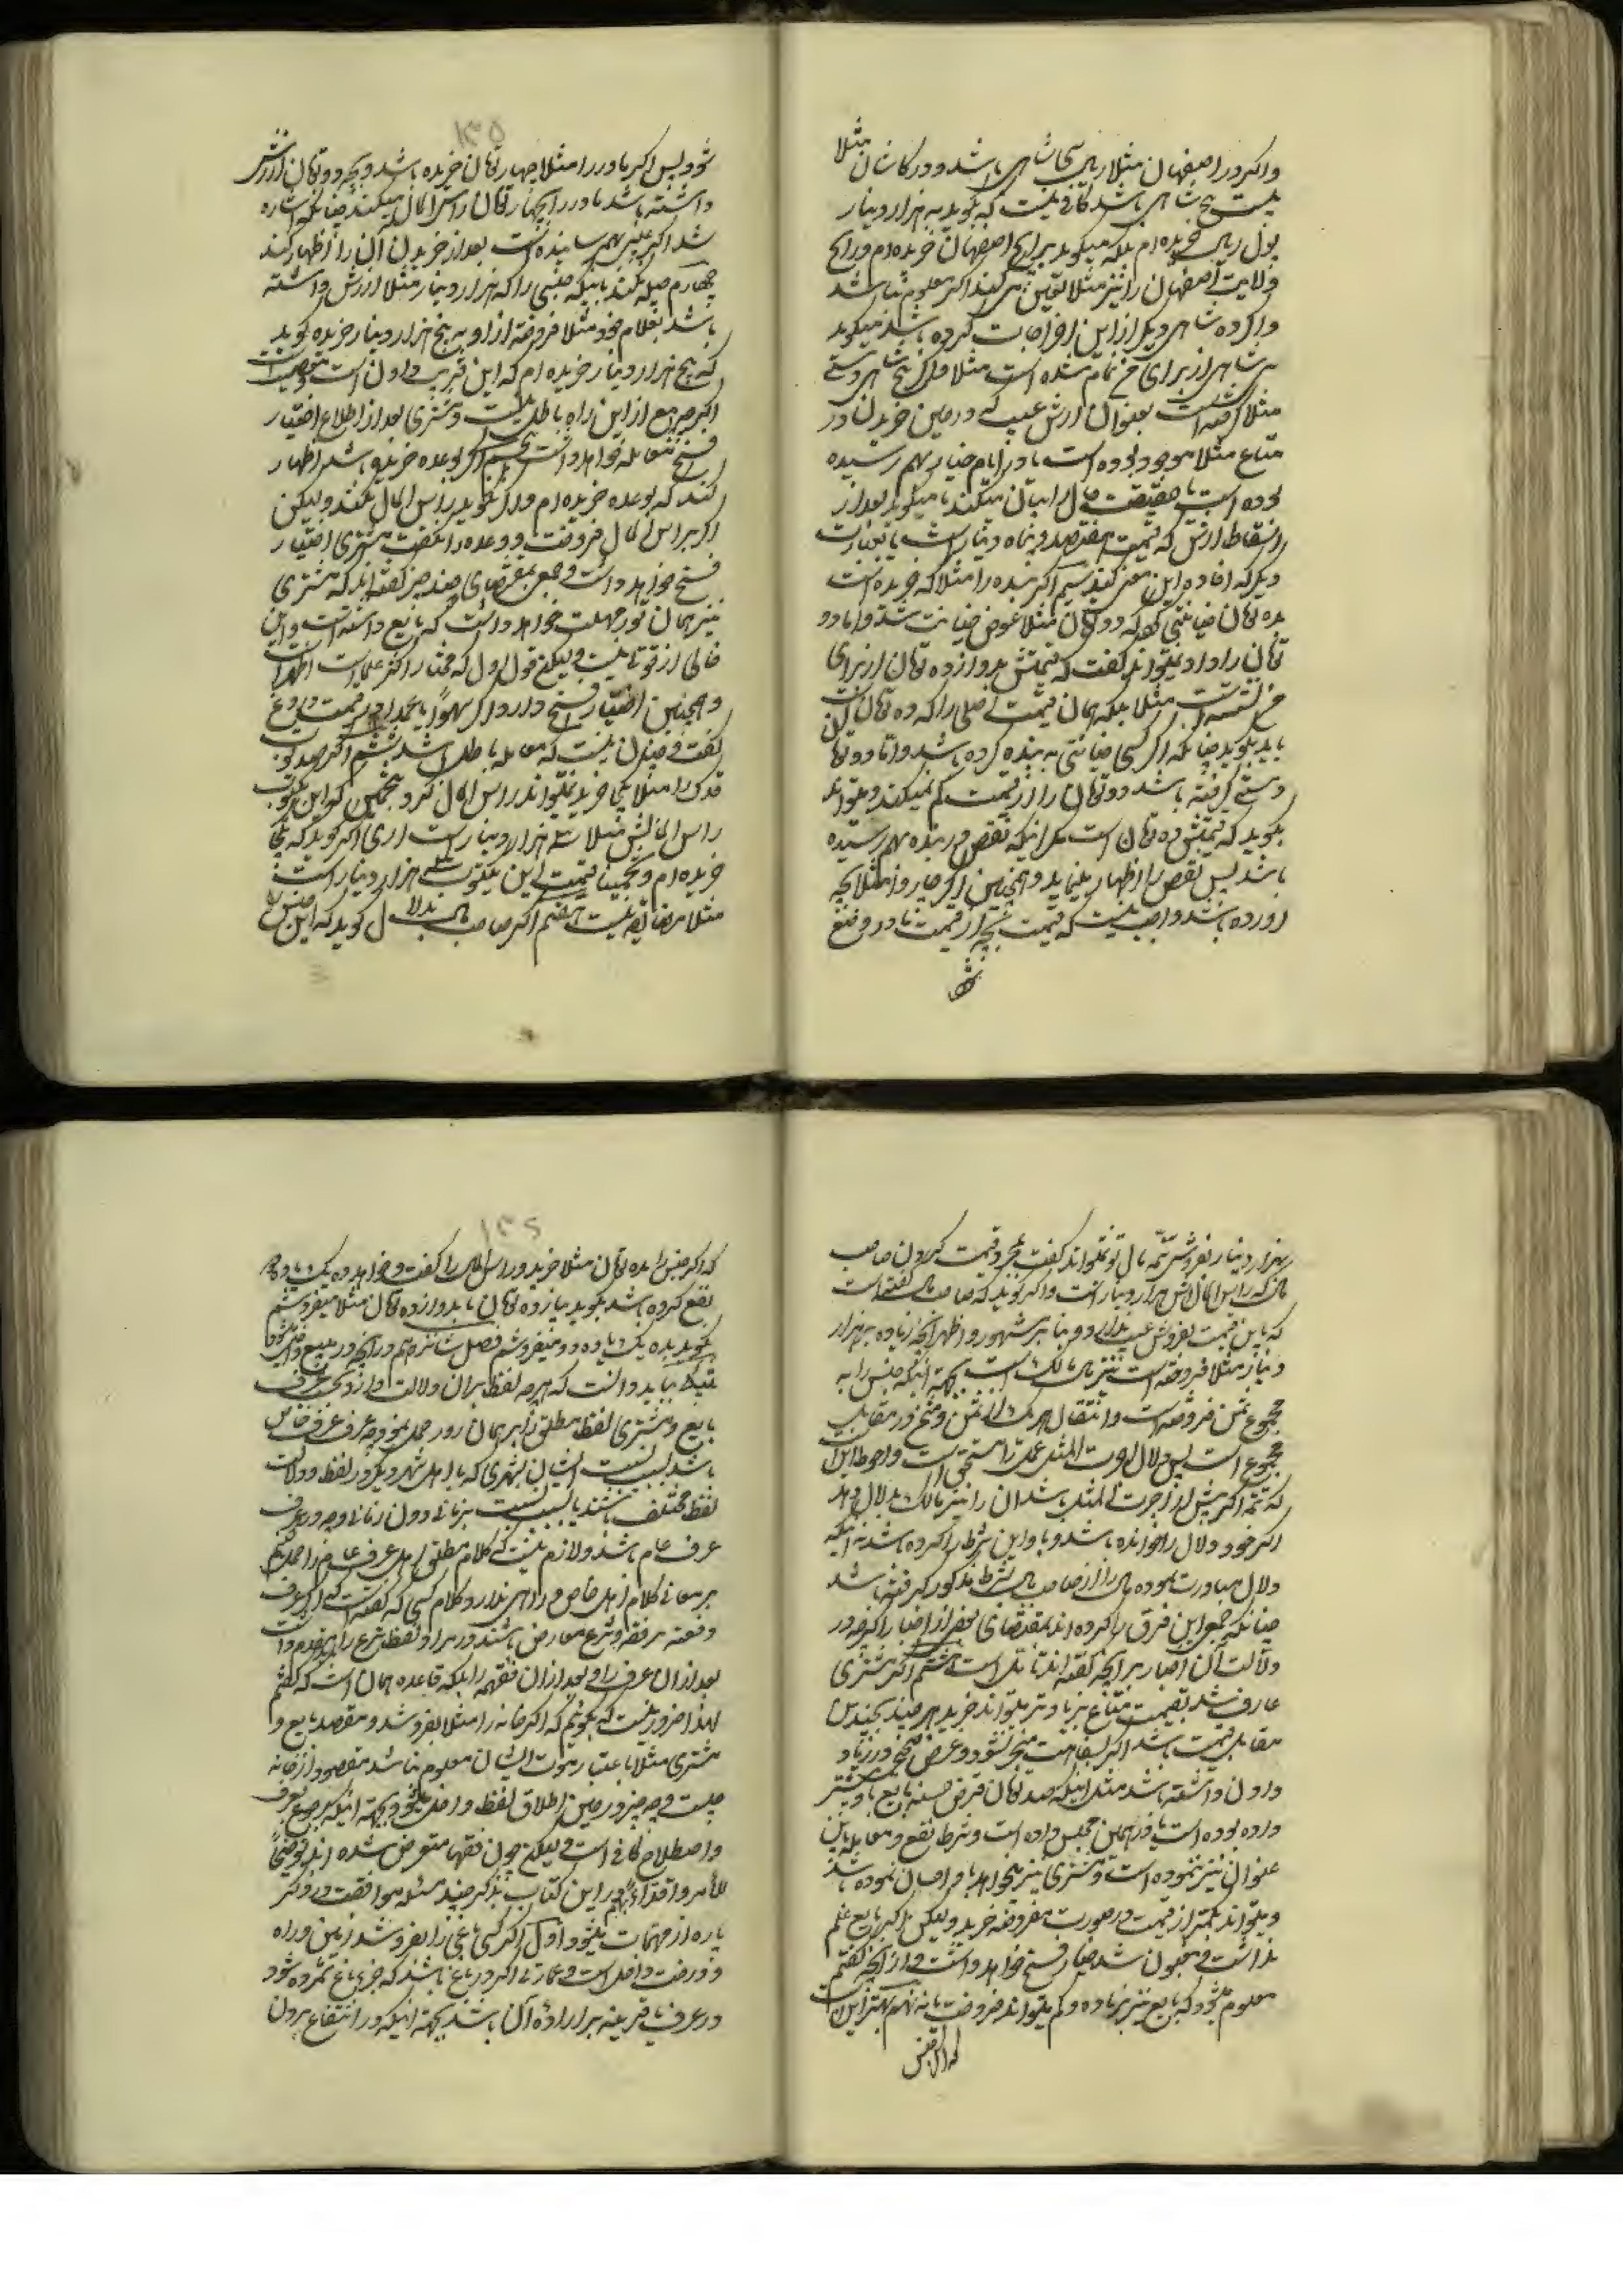 واکر در اصفهان مثلا ریالی سی شاهی باشد و در کاشان مثلا
بیست پنج شاهی باشد کافی نیست که بکوید به هزار دینار
پول ریالی خریده‌ام بلکه میکوید برایج اصفهان خریده‌ام و رایج
ولایت اصفهان را نیز مثلا تعیین می کند اکر معلوم نباشد
واکر ده شاهی دیکر از این اخراجات کرده باشد میکوید
شاهی از برای من تمام شده است مثلا و اکر پنج شاهی دستی
مثلا کرفته است بعنوان ارش عیب که در حین خریدن در
متاع مثلا موجود بوده است یا در ایام خیار بهم رسیده
بوده است یا حقیقت حال را بیان میکند یا میکوید بعد از
اسقاط ارش که قیمت هفتصد و پنجاه دینار است یا بعبارت
دیکر که افاده این معنی کند سیم اکر بنده را مثلا که خریده است
بده تومان خیانتی کند که دو تومان مثلا عوض خیانت شد و اما دو
تومان را داد نمیتواند کفت که قیمتش بدوازده تومان از برای
من نشسته است مثلا بلکه همان قیمت اصلی را که ده تومان است
باید بکوید چنانکه اکر کسی خیانتی به بنده کرده باشد و اقا دو تومان
دستی کرفته باشد دو تومان را از قیمت کم نمیکند و میتواند
بکوید که قیمتش ده تومان است مکر اینکه نقص در بنده بهم رسیده
باشد پس نقص را اظهار مینماید و همچنین اکر چاروا مثلا بچه
آورده باشد واجب نیست که قیمت بچه از قیمت مادر وضع
شود
١٣٥
شود پس اکر مادر را مثلا چهار تومان خریده باشد و بچه دو تومان ارزش
داشته باشد مادر را بچهار تومان راس المال میکند چنانکه اشاره
شد اکر عیبی بهم رسانیده است بعد از خریدن آن را اظهار کند
چهارم حیله نکند باینکه جنسی را که هزار دینار مثلا ارزش داشته
باشد بغلام خود مثلا فروخته از او به پنج هزار دینار خریده کوید
که پنج هزار دینار خریده‌ام که این فریب دادن است و معصیت است
اکرچه بیع از این راه باطل نیست و مشتری بعد از اطلاع اختیار
فسخ معامله خواهد داشت پنجم اکر بوعده خریده باشد اظهار
کند که بوعده خریده‌ام و اکر نکوید راس المال نکند و لیکن
اکر براس المال فروخت و وعده را نکفت مشتری اختیار
فسخ خواهد داشت و جمعی بمقتضای چند خبر کفته‌اند که مشتری
نیز همان قدر مهلت خواهد داشت که بایع داشته است و این
خالی از قوت نیست و لیکن قول اول که مختار اکثر علما است اظهر است
و همچنین اختیار فسخ دارد اکر سهوا یا عمدا در قیمت دروغ
کفت و چنان نیست که معامله باطل باشد ششم اکر صد ثوب
قدک را مثلا یکجا خرید نمیتواند راس المال کرد و بتخمین کفت این یکثوب
راس المالش مثلا سه هزار دینار است اری اکر کوید که یکجا
خریده‌ام و تخمینا قیمت این یکثوب سه هزار دینار است
مثلا مضایقه نیست هفتم اکر صاحب مال بدلال کوید که این جنس را
بهزار دینار بفروش تتمه مال تو نمیتواند کفت بمجرد قیمت کردن صاحب
مال که راس المال این هزار دینار است واکر کوید که صاحب مال کفته است
که باین قیمت بفروش عیب ندارد و بنا بر مشهور و اظهر آنچه زیاده بر هزار
دینار مثلا فروخته است نیز مال مالک است بجهة اینکه جنس را به
مجموع ثمن فروخته است و انتقال هر یک از ثمن و مثمن در مقابل
مجموع است پس دلال اجرت المثل عملش را مستحق است و احوط این است
که تتمه اکر بیش از اجرت المثل باشد آن را نیز مالک بدلال دهد
اکر خود دلال را خوانده باشد و با او این شرط را کرده باشد نه اینکه
دلال مبادرت نموده مال را از صاحب مال بشرط مذکور کرفته باشد
چنانکه جمعی این فرق را کرده‌اند بمقتضای بعضی از اخبار اکرچه در
دلالت آن اخبار بر آنچه کفته‌اند تأمل است هشتم اکر مشتری
عارف باشد بقیمت متاع بزیادتر میتواند خرید هر چند بچندین
مقابل قیمت باشد اکر بسفاهت منجر نشود و غرض صحیحی در زیاد
دادن داشته باشد مثل اینکه صد تومان قرض حسنه بایع باو پیشتر
داده بوده است یا در همین مجلس داده است و شرط نفع و معامله باین
عنوان نیز ننموده است و مشتری نیز میخواهد باو احسان نموده باشد
و میتواند بکمتر از قیمت در صورت مفروضه خرید و لیکن اکر بایع علم
نداشت و مغبون شد خیار فسخ خواهد داشت و از آنچه کفتیم
معلوم میشود که بایع نیز بزیاده و کم میتواند فروخت یا نه نهم بهتر این است
که اکر جنس
١٣٦
که اکر جنس را بده تومان مثلا خرید و راس المال را کفت و خواهد ده یک یا ده دو
نفع کرده باشد بکوید بیازده تومان یا بدوازده تومان مثلا میفروشم
نکوید بده یک یا ده دو میفروشم فصل شانزدهم در آنچه در مبیع داخل میشود
بدانکه باید دانست که هر چه لفظ بر آن دلالت دارد بحسب عرف
بایع و مشتری لفظ مطلق را بر همان رو حمل نمود چه عرف عرف خاص
باشد بسبب نسبت ایشان بشهری که با اهل شهر دیکر در لفظ و دلالت
لفظ مختلف باشند یا بسبب نسبت بزمانی دون زمانی و چه در عرف
عرف عام باشد و لازم نیست که کلام مطلق اهل عرف عام را حمل کنیم
بر معانی کلام اهل خاص و راهی ندارد کلام کسی که کفته است که اکر عرف
و لغت و فقه و شرع معارض باشند در مراد لفظ شرع را مقدم داشت
بعد از آن عرف را و بعد از آن فقهیه را بلکه قاعده همان است که کفتیم
لهذا ضرور نیست که بکوییم که اکر خانه را مثلا بفروشد و مقصد بایع و
مشتری مثلا باعتبار موت ایشان معلوم نباشد مقصود از خانه
چیست و چه چیز در حین اطلاق لفظ داخل میشود بجهة اینکه رجوع بعرف
و اصطلاح کافی است و لیکن چون فقها متعرض شده‌اند توضیحا
للامر و اقتداء بهم در این کتاب بذکر چند مسئله موافقت در ذکر
پاره از مهمات میشود اول اکر کسی باغی را بفروشد زمین و راه
و درخت داخل است و عمارتی اکر در باغ باشد که جزء باغ شمرده شود
در عرف یا قرینه بر اراده آن باشد بجهة اینکه در انتفاع بردن